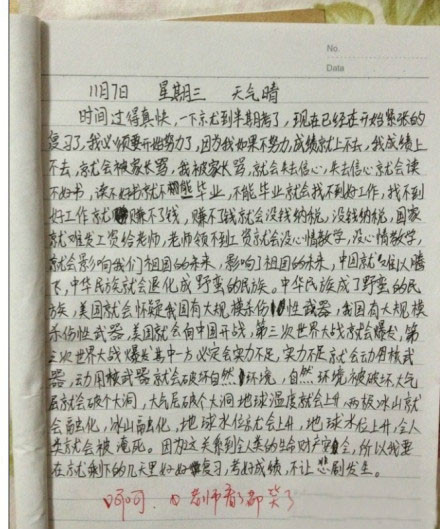 No.
Data
11月7日 星期三 天气晴
时间过得真快,一下就到半期考了,现在已经在开始紧张的
复习了,我必须要开始努力了,因为我如果不努力,成绩就上不去,我成绩上
不去,就会被家长骂,我被家长骂,就会失去信心,失去信心就会读
不好书,读不好书就不能毕业,不能毕业就会找不到好工作,找不到
好工作就赚不了钱,赚不了钱就会没钱纳税,没钱纳税,国家
就难发工资给老师,老师领不到工资就会没心情教学,没心情教学,
就会影响我们祖国的未来,影响了祖国的未来,中国就难以腾
飞,中华民族就会退化成野蛮的民族。中华民族成了野蛮的民
族,美国就会怀疑我国有大规模杀伤性武器,我国有大规模
杀伤性武器,美国就会向中国开战,第三次世界大战就会爆发,第
三次世界大战爆发其中一方必定会实力不足,实力不足就会动用核武
器,动用核武器就会破坏自然环境,自然环境被破坏大气
层就会破个大洞,大气层破个大洞地球温度就会上升,两极冰山就
会融化,冰山融化,地球水位就会上升,地球水位上升,全人
类就会被淹死。因为这关系到全人类的生命财产安全,所以我要
在就剩下的几天里好好复习,考好成绩,不让悲剧发生。
呵呵. 老师看了都笑了